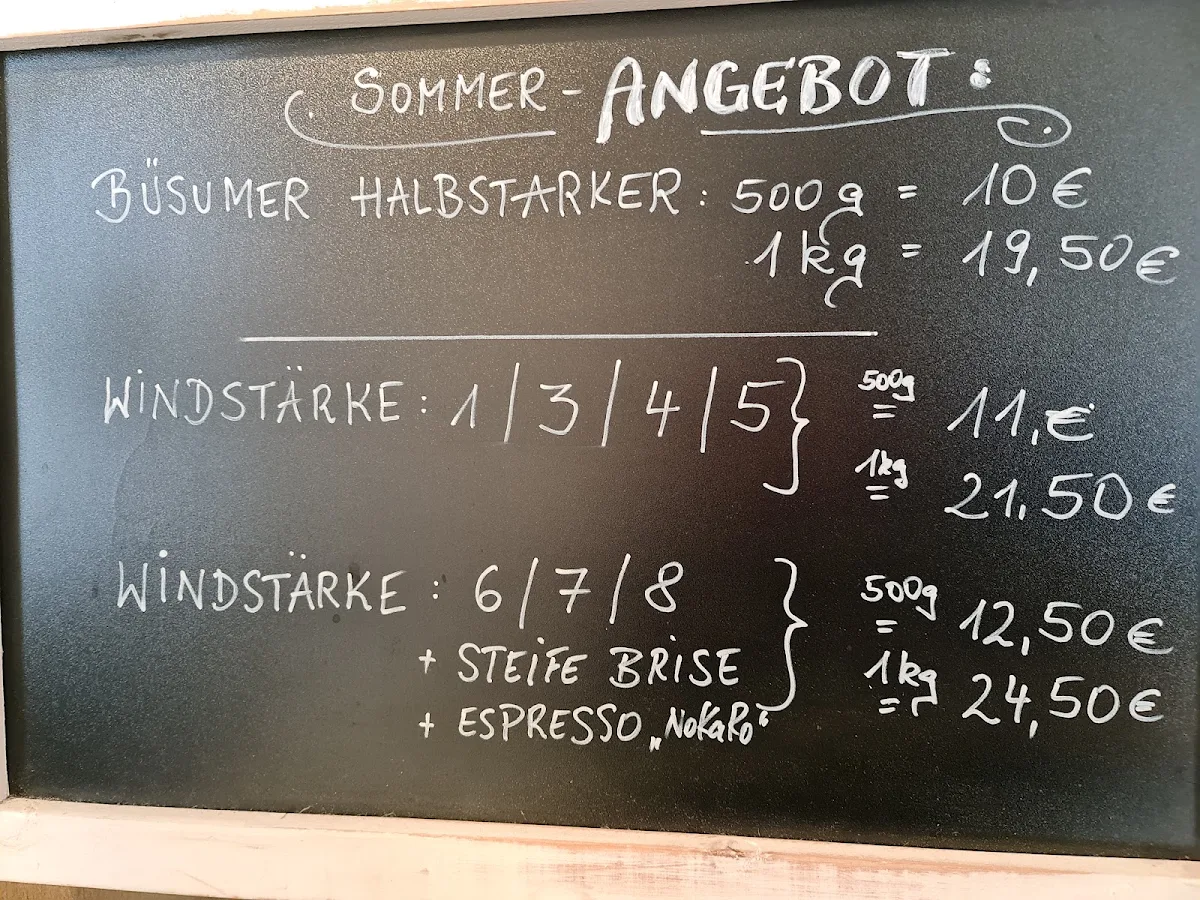 SOMMER - ANGEBOT:
BÜSUMER HALBSTARKER: 500g = 10€
1kg = 19,50€
WINDSTÄRKE: 1/3/4/5} 500g = 11,€
1kg = 21,50€
WINDSTÄRKE: 6/7/8 } 500g = 12,50€
+ STEIFE BRISE 1kg = 24,50€
+ ESPRESSO „NoKaRo“